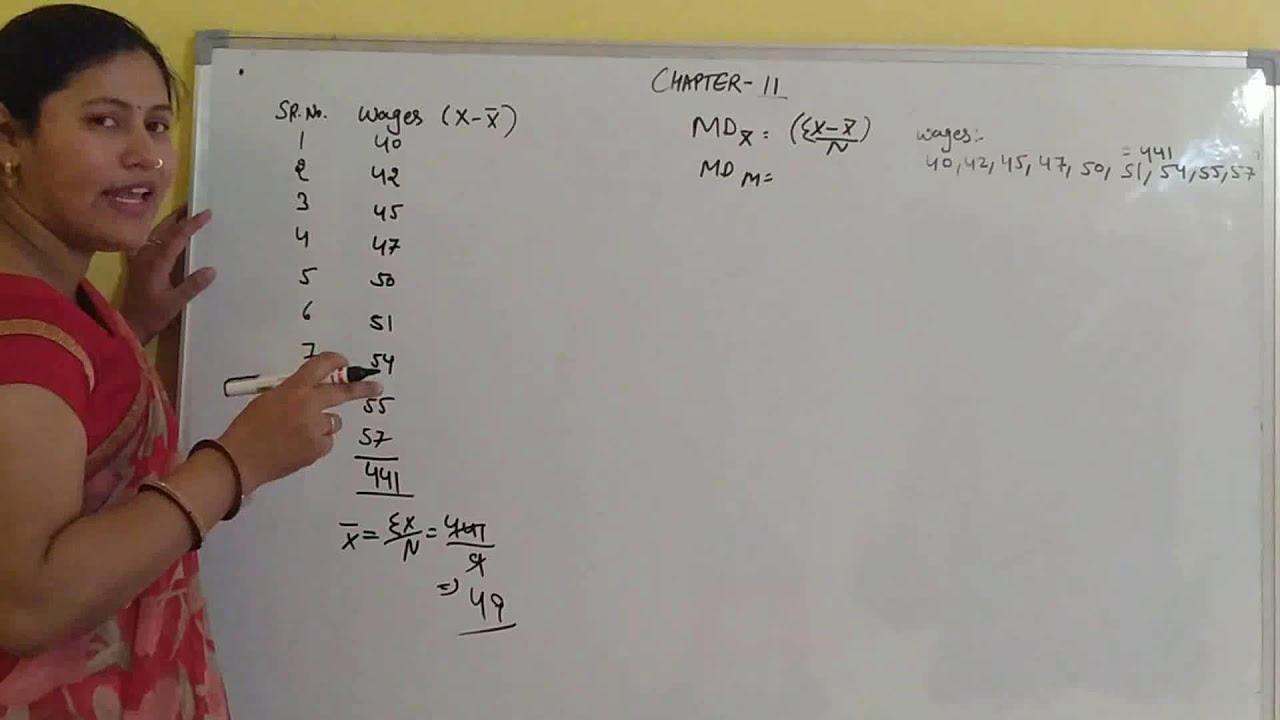 CHAPTER-11
SR.No. Wages (X-X̄)
1 40
2 42
3 45
4 47
5 50
6 51
7 54
55
57
441
x̄ = Σx/N = 441/9
⇒ 49
MD x̄ = (Σx-x̄)/N
MD M =
Wages:-
= 441
40, 42, 45, 47, 50, 51, 54, 55, 57